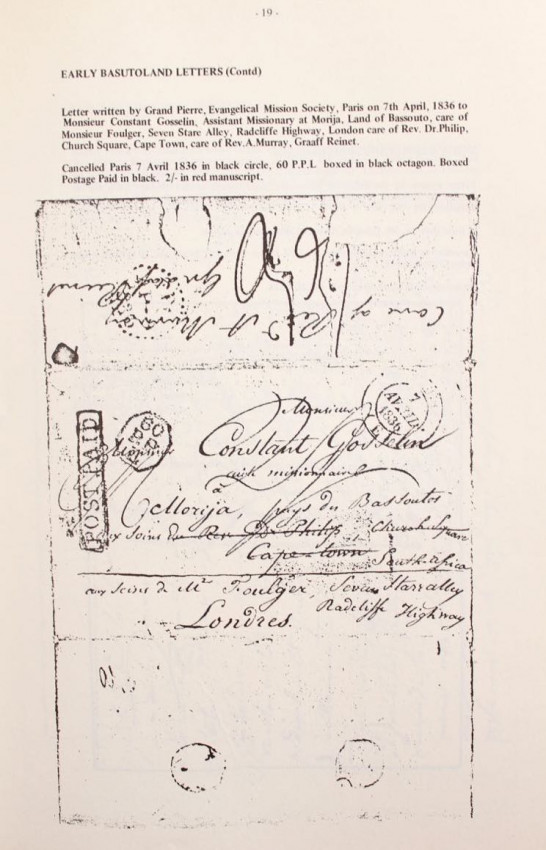 - 19 -
EARLY BASUTOLAND LETTERS (Contd)
Letter written by Grand Pierre, Evangelical Mission Society, Paris on 7th April, 1836 to
Monsieur Constant Gosselin, Assistant Missionary at Morija, Land of Bassouto, care of
Monsieur Foulger, Seven Starc Alley, Radcliffe Highway, London care of Rev. Dr.Philip,
Church Square, Cape Town, care of Rev.A.Murray, Graaff Reinet.
Cancelled Paris 7 Avril 1836 in black circle, 60 P.P.L boxed in black octagon. Boxed
Postage Paid in black. 2/- in red manuscript.
Care of Revd A Murray
POST PAID
60
7
1836
Monsieur
Monsieur
Constant Gosselin
missionnaire
à
Morija, pays des Bassoutos
aux soins du Rev. Dr. Philip Church Square
Cape-town South-Africa
aux soins de Mr Foulger, Seven Starr alley
Radcliffe Highway
Londres.